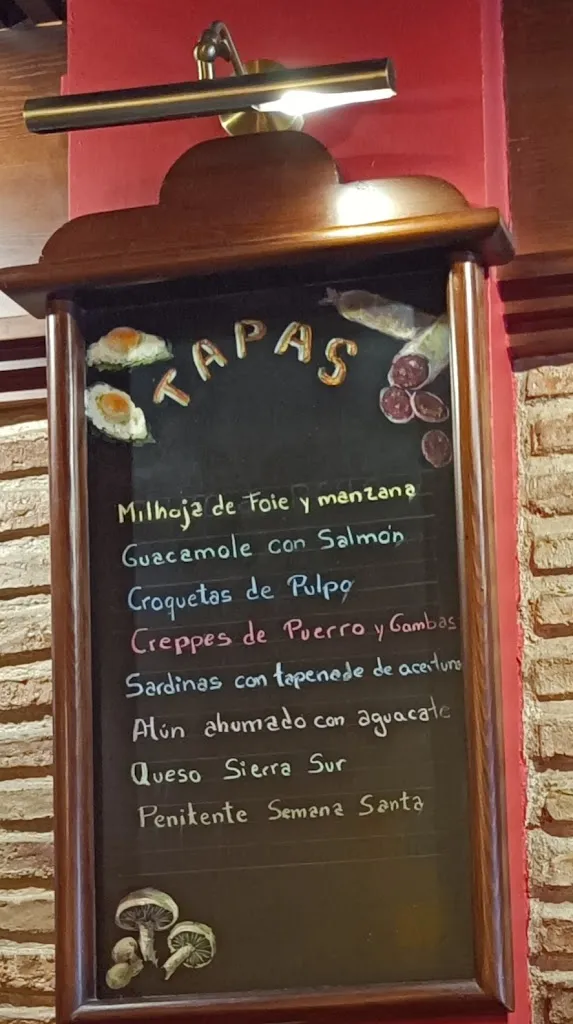 TAPAS
Milhoja de Foie y manzana
Guacamole con Salmón
Croquetas de Pulpo
Creppes de Puerro y Gambas
Sardinas con tapenade de aceituna
Atún ahumado con aguacate
Queso Sierra Sur
Penitente Semana Santa